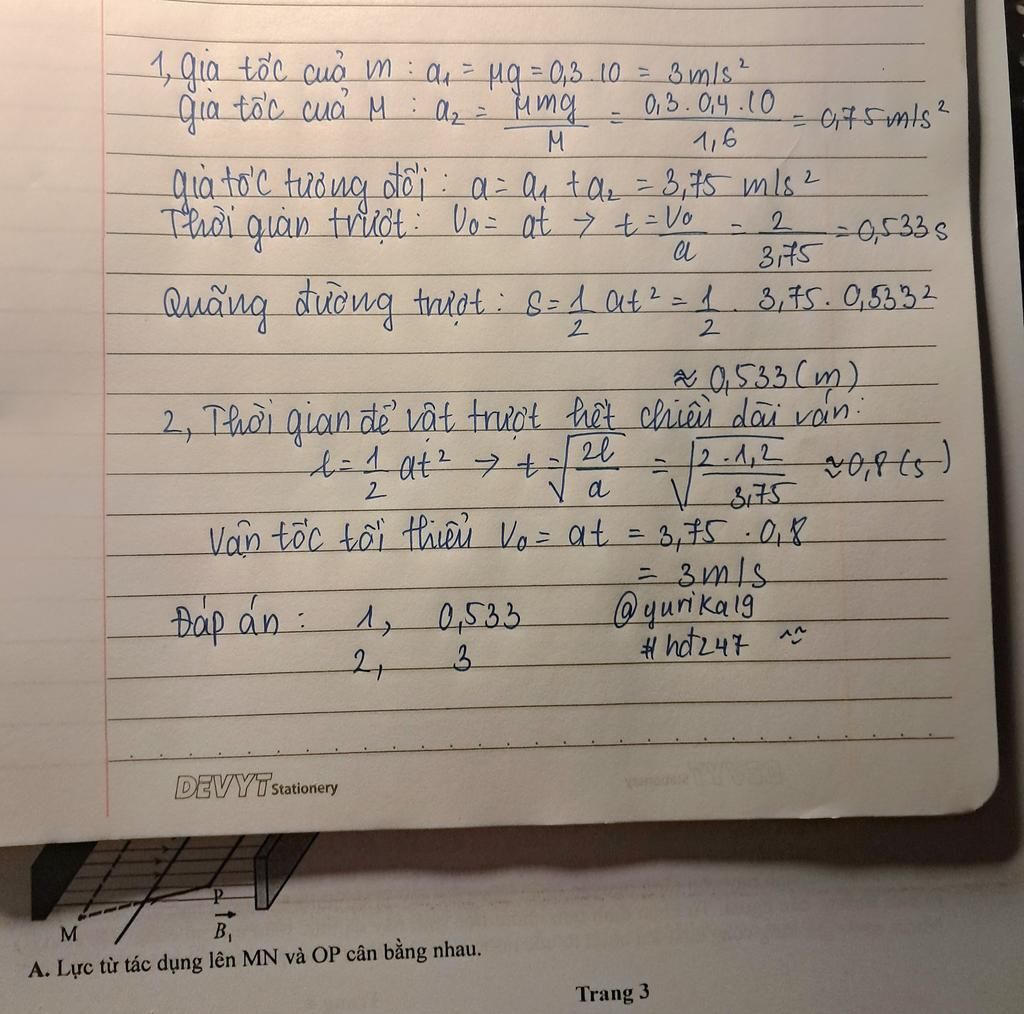 1, gia tốc cuả m : a₁ = μg = 0,3 . 10 = 3 m/s²
Gia tốc cuả M : a₂ = μmg/M = 0,3 . 0,4 . 10/1,6 = 0,75 m/s²
Gia tốc tương đối : a = a₁ + a₂ = 3,75 m/s²
Thời gian trượt : V₀ = at → t = V₀/a = 2/3,75 = 0,533 s
Quãng đường trượt : S = 1/2 at² = 1/2 . 3,75 . 0,533²
≈ 0,533 (m)
2, Thời gian để vật trượt hết chiều dài ván :
l = 1/2 at² → t = √(2l/a) = √(2 . 1,2/3,75) ≈ 0,8 (s)
Vận tốc tối thiểu V₀ = at = 3,75 . 0,8
= 3 m/s
Đáp án : 1, 0,533 @yurika19
2, 3 #hdt247 ^^
DEVYT Stationery
P
M B₁
A. Lực từ tác dụng lên MN và OP cân bằng nhau.
Trang 3